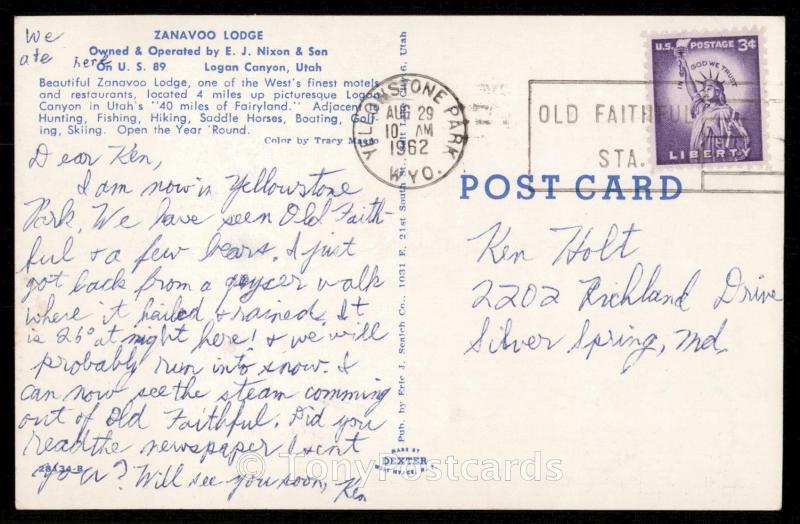 We
ate here
ZANAVOO LODGE
Owned & Operated by E. J. Nixon & Son
On U. S. 89 Logan Canyon, Utah
Beautiful Zanavoo Lodge, one of the West's finest motels
and restaurants, located 4 miles up picturesque Logan
Canyon in Utah's "40 miles of Fairyland." Adjacent to
Hunting, Fishing, Hiking, Saddle Horses, Boating, Golf-
ing, Skiing. Open the Year 'Round.
Color by Tracy
Dear Ken,
I am now in Yellowstone
Park. We have seen Old Faith-
ful & a few bears. I just
got back from a geyser walk
where it hailed & rained. It
is 26° at night here! & we will
probably run into snow. I
can now see the steam comming
out of Old Faithful. Did you
read the newspaper I sent
you? Will see you soon, Ken
28134-B
Pub. by Eric J. Seaich Co., 1031 E. 21st South St., Salt Lake City 6, Utah
MADE BY
DEXTER
YELLOWSTONE PARK
AUG 29
10 AM
1962
WYO.
OLD FAITHFUL
STA.
U.S. POSTAGE 3¢
IN GOD WE TRUST
LIBERTY
POST CARD
Ken Holt
2202 Richland Drive
Silver Spring, Md.
© TonyPostcards